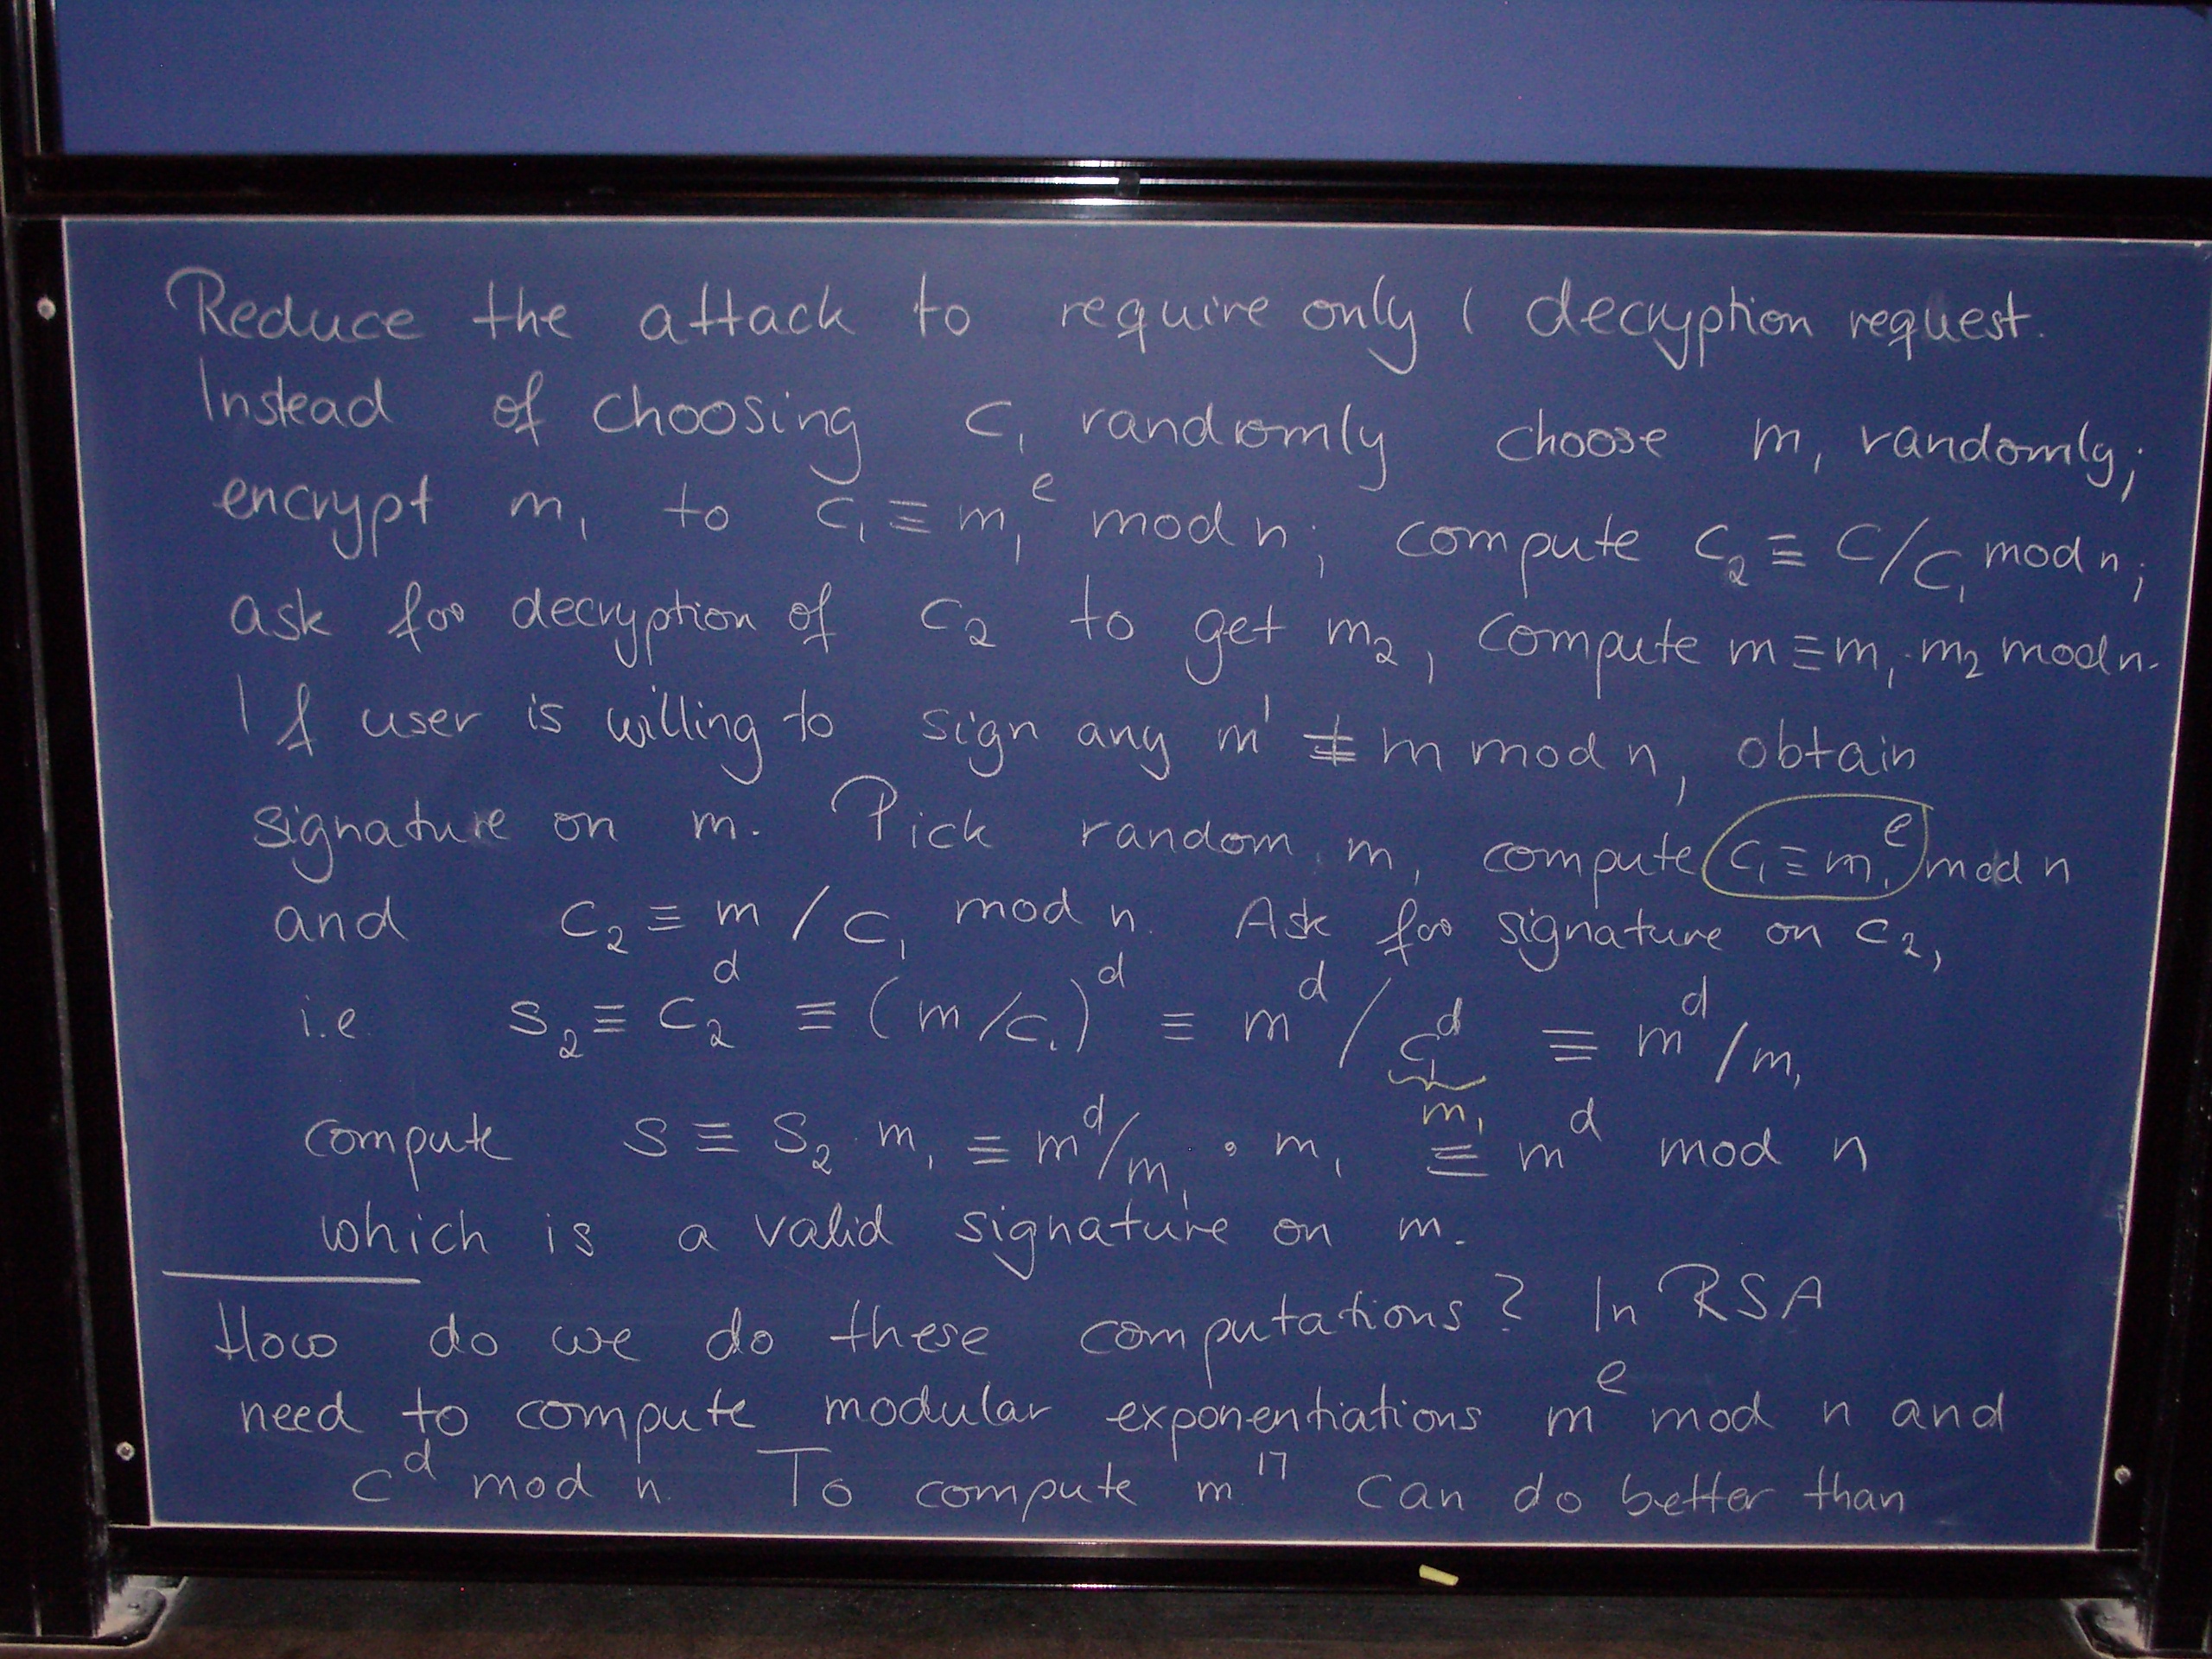 Reduce the attack to require only 1 decryption request.
Instead of choosing c₁ randomly choose m₁ randomly;
encrypt m₁ to c₁ ≡ m₁ᵉ mod n; compute c₂ ≡ c/c₁ mod n;
ask for decryption of c₂ to get m₂, compute m ≡ m₁·m₂ mod n.
If user is willing to sign any m' ≢ m mod n, obtain
signature on m. Pick random m₁ compute c₁ ≡ m₁ᵉ mod n
and c₂ ≡ m / c₁ mod n. Ask for signature on c₂,
i.e s₂ ≡ c₂ᵈ ≡ (m/c₁)ᵈ ≡ mᵈ / c₁ᵈ ≡ mᵈ/m₁
m₁
compute s ≡ s₂ · m₁ ≡ mᵈ/m₁ · m₁ ≡ mᵈ mod n
which is a valid signature on m.
How do we do these computations? In RSA
need to compute modular exponentiations mᵉ mod n and
cᵈ mod n. To compute m¹⁷ can do better than